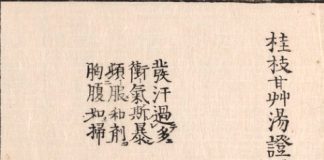 桂枝甘艸湯證
發汗過多
衝氣斯暴
頻服和劑
胸腹如掃